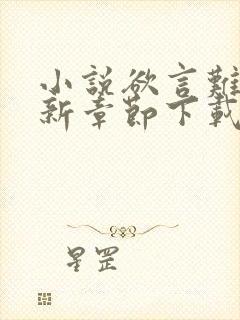 小說欲言難
新章節下載
星罡